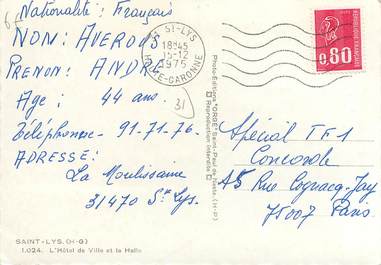 65
Nationalité : Français
NOM: AVEROUS
PRENOM: ANDRÉ
Age : 44 ans.
Téléphone - 91-71-76.
ADRESSE:
La Moulissaine
31470 St Lys.
ST-LYS
18H45
15-12
1975
HTE-GARONNE
31
REPUBLIQUE FRANÇAISE
0,80
Photo-Editions "ORBE" Saint-Paul de Neste. (H.-P.)
Reproduction interdite
Spécial TF1
Concorde
15 Rue Cognacq-Jay
75007 Paris
SAINT-LYS (H-G)
1.024. L'Hôtel de Ville et la Halle